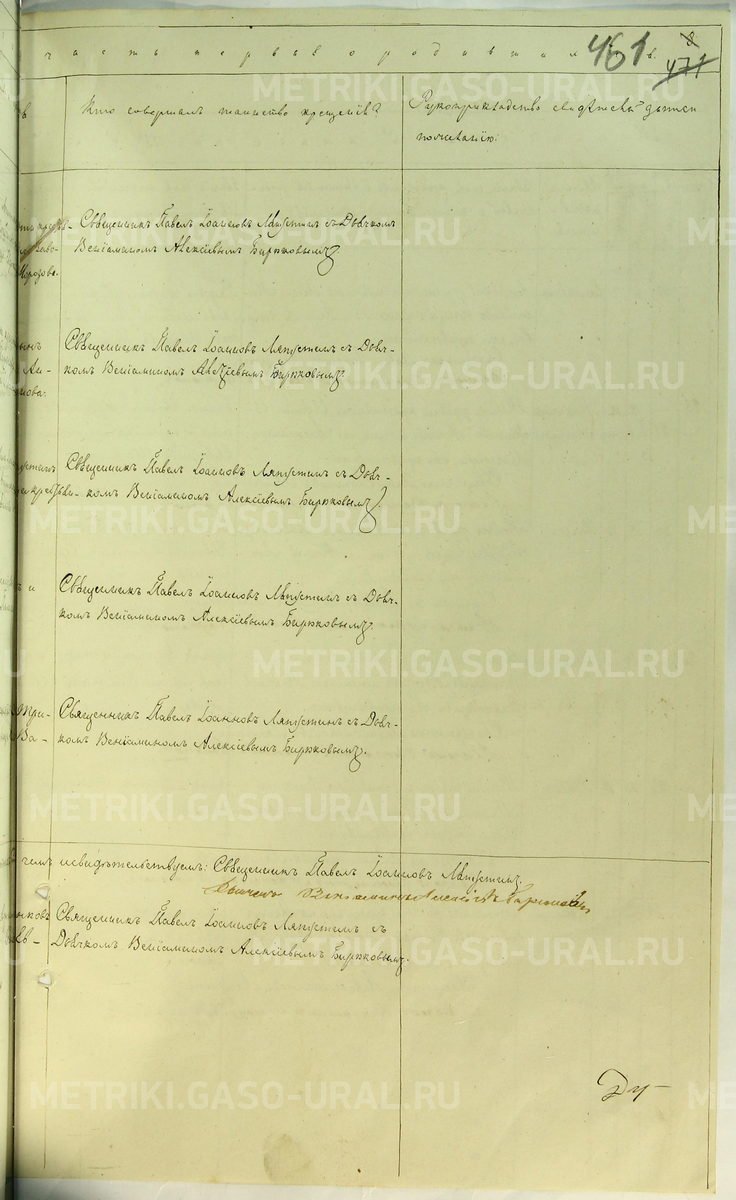 часть перваѧ о родившихсѧ
461
471
Кто совершалъ таинство крещенія?
Рукоприкладство свидѣтелей записи
по желанію.
Священникъ Павелъ Іоанновъ Ляпустинъ съ Дьячкомъ
Веніаминомъ Алексіевымъ Бирюковымъ.
Морозова.
Священникъ Павелъ Іоанновъ Ляпустинъ съ Дьяч-
комъ Веніаминомъ Алексіевымъ Бирюковымъ.
Священникъ Павелъ Іоанновъ Ляпустинъ съ Дьяч-
комъ Веніаминомъ Алексіевымъ Бирюковымъ.
ъ и
Священникъ Павелъ Іоанновъ Ляпустинъ съ Дьяч-
комъ Веніаминомъ Алексіевымъ Бирюковымъ.
Священникъ Павелъ Іоанновъ Ляпустинъ съ Дьяч-
комъ Веніаминомъ Алексіевымъ Бирюковымъ.
чемъ и свидѣтельствуемъ: Священникъ Павелъ Іоанновъ Ляпустинъ.
Дьячекъ Веніаминъ Алексіевъ Бирюковъ
Священникъ Павелъ Іоанновъ Ляпустинъ съ
Дьячкомъ Веніаминомъ Алексіевымъ Бирюковымъ.
Ду-
METRIKI.GASO-URAL.RU